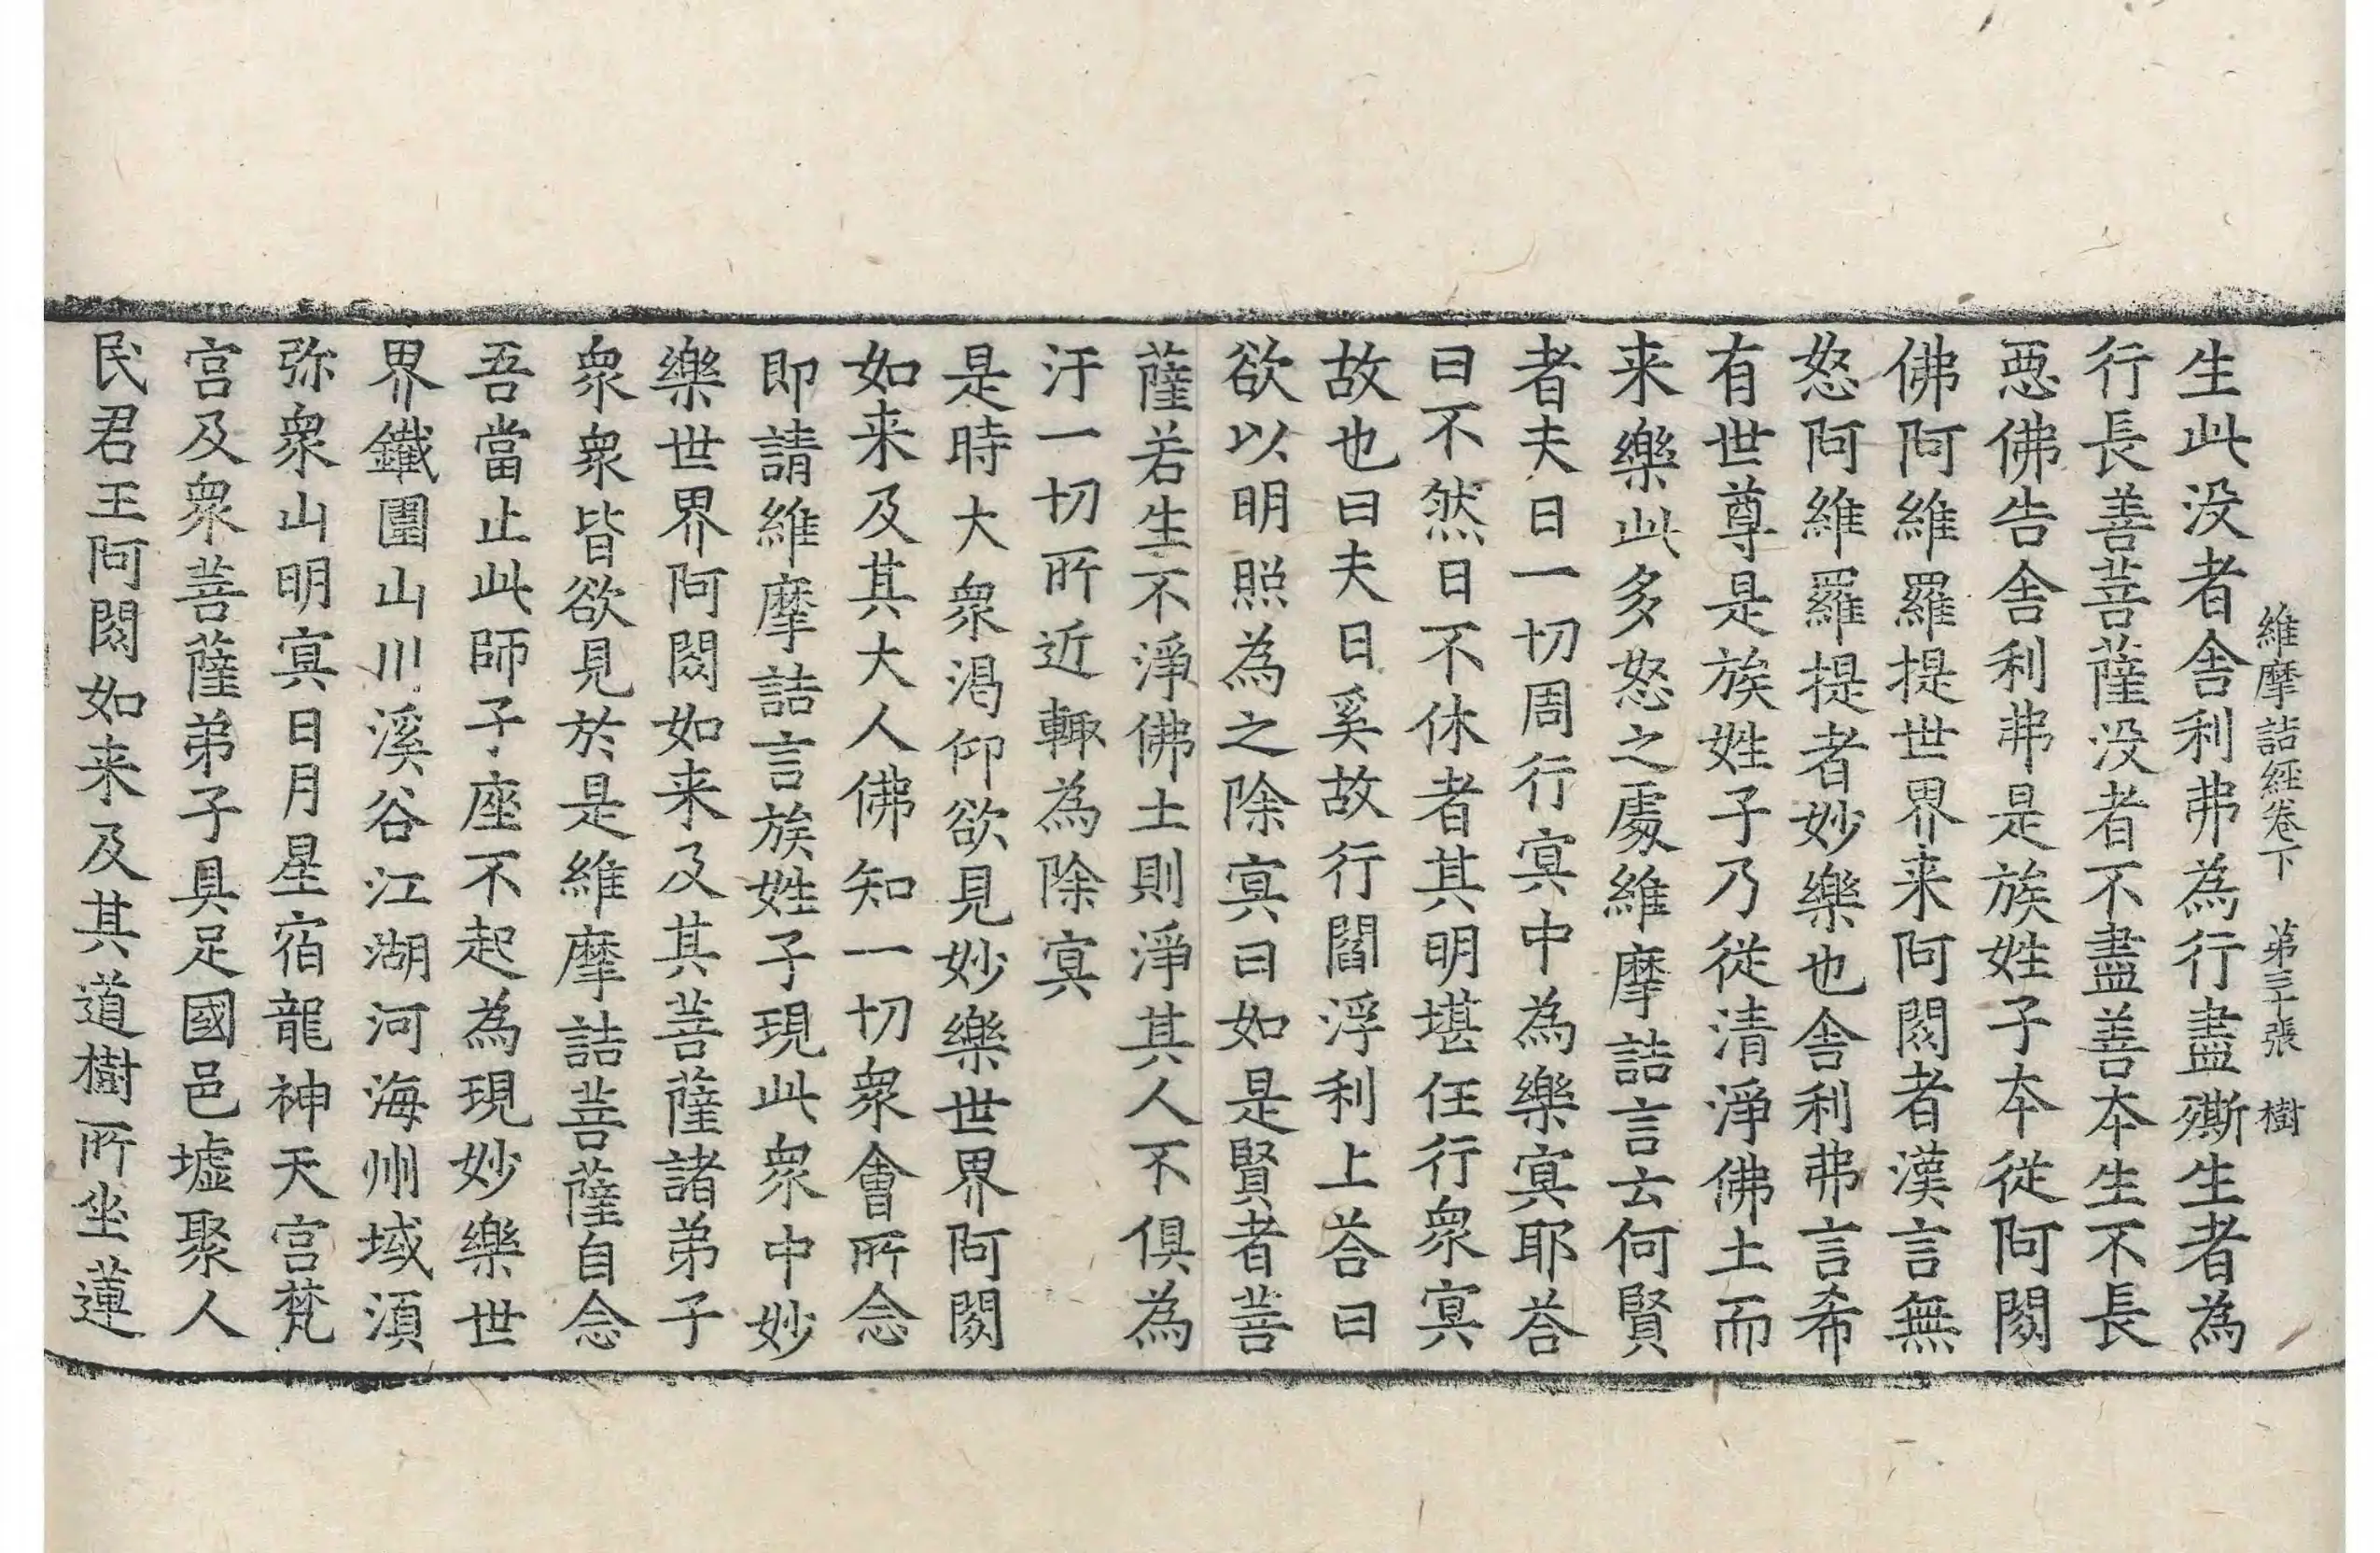 維摩詰經卷下　第三十張　樹
生此没者舍利弗為行盡㒋生者為
行長善菩薩没者不盡善本生不長
惡佛告舍利弗是族姓子本從阿閦
佛阿維羅提世界来阿閦者漢言無
怒阿維羅提者妙樂也舍利弗言希
有世尊是族姓子乃從清淨佛土而
来樂此多怒之處維摩詰言云何賢
者夫日一切周行冥中為樂冥耶荅
曰不然日不休者其明堪任行衆冥
故也曰夫日奚故行閻浮利上荅曰
欲以明照為之除冥曰如是賢者菩
薩若生不淨佛土則淨其人不俱為
汙一切所近輙為除冥
是時大衆渴仰欲見妙樂世界阿閦
如来及其大人佛知一切衆會所念
即請維摩詰言族姓子現此衆中妙
樂世界阿閦如来及其菩薩諸弟子
衆衆皆欲見於是維摩詰菩薩自念
吾當止此師子座不起為現妙樂世
界鐵圍山川溪谷江湖河海州域湏
弥衆山明冥日月星宿龍神天宫梵
宫及衆菩薩弟子具足國邑墟聚人
民君王阿閦如来及其道樹所坐蓮